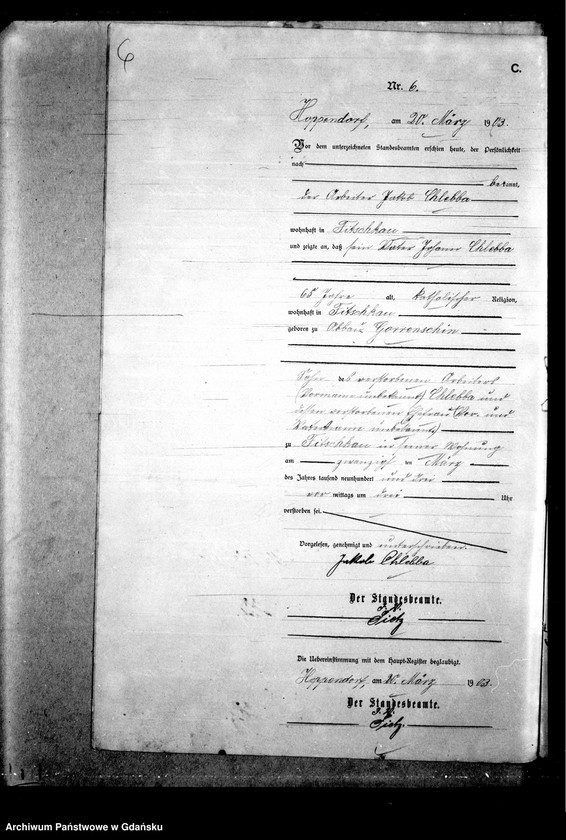 6
C.
Nr. 6.
Hoppendorf, am 20. März 1903.
Vor dem unterzeichneten Standesbeamten erschien heute, der Persönlichkeit
nach
bekannt,
der Arbeiter Jakob Chlebba
wohnhaft in Fitschkau
und zeigte an, daß sein Vater Johann Chlebba
65 Jahre alt, katholischer Religion,
wohnhaft in Fitschkau
geboren zu Abbau Gorrenschin
Sohn des verstorbenen Arbeiters
(Vorname unbekannt) Chlebba und
dessen verstorbenen Ehefrau (Vor- und
Vatersname unbekannt)
zu Fitschkau in seiner Wohnung
am zwanzigsten März
des Jahres tausend neunhundert und drei
vor mittags um drei Uhr
verstorben sei.
Vorgelesen, genehmigt und unterschrieben.
Jakob Chlebba
Der Standesbeamte.
J. V.
Tietz
Die Uebereinstimmung mit dem Haupt-Register beglaubigt.
Hoppendorf, am 20. März 1903.
Der Standesbeamte.
J. V.
Tietz.
Archiwum Państwowe w Gdańsku